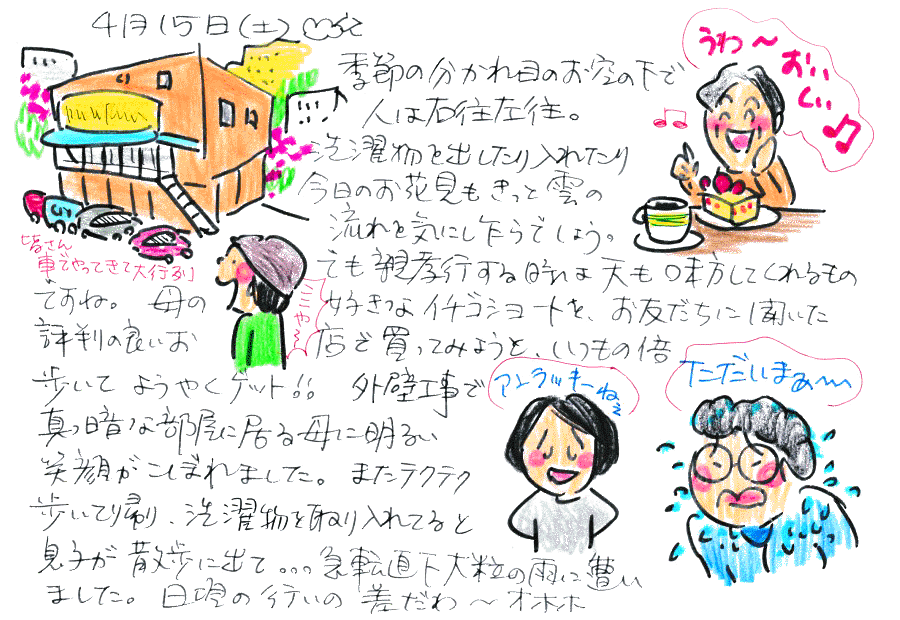 4月15日(土)
季節の分かれ目のお空の下で
人は右往左往。
洗濯物を出したり入れたり
今日のお花見もきっと雲の
流れを気にし乍らでしょう。
でも親孝行する時は天も味方してくれるもの
ですね。 母の
好きなイチゴショートを、お友だちに聞いた
評判の良いお
店で買ってみようと、いつもの倍
歩いてようやくゲット!! 外壁工事で
真っ暗な部屋に居る母に明るい
笑顔がこぼれました。またテクテク
歩いて帰り、洗濯物を取り入れてると
息子が散歩に出て...急転直下大粒の雨に遭い
ました。日頃の行いの差だわ～オホホ
うわ～
おい
しい
皆さん
車でやってきて大行列」
ミニャ～
アンラッキーねぇ
ただいまぁ～